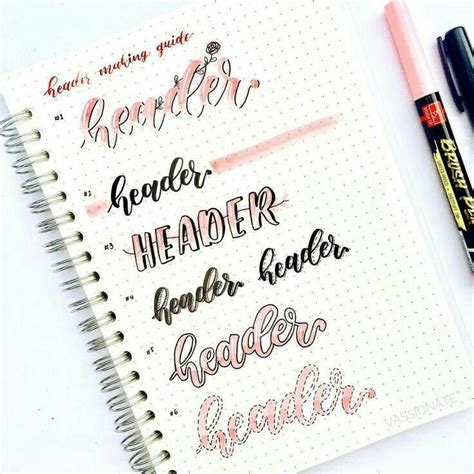 header making guide
#1 header
#2 header
#3 HEADER
#4 header header
#5 header
#6 header
BRUSH PEN
VASSIONATE